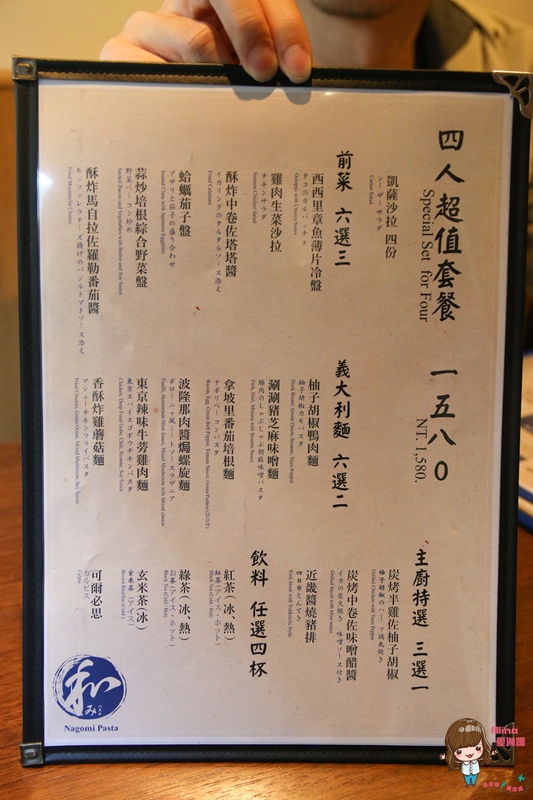 四人超值套餐 一五八〇
Special Set for Four NT. 1,580.
凱薩沙拉 四份
シーザーサラダ
Caesar Salad
前菜 六選三
西西里章魚薄片冷盤
タコのカルパッチョ
Octopus with Classic Sauce
雞肉生菜沙拉
チキンサラダ
Sesame Chicken Salad
酥炸中卷佐塔塔醬
イカリングのタルタルソース添え
Fried Calamari
蛤蠣茄子盤
アサリと茄子の盛り合わせ
Sauted Clam with Japanese Eggplant
蒜炒培根綜合野菜盤
野菜ベーコン炒め
Sauted Bacon and Vegetables with Butter and Soy Sauce
酥炸馬自拉佐羅勒番茄醬
モッツァレラチーズ揚げのバジルトマトソース添え
Fried Mozzarella Cheese
義大利麵 六選二
柚子胡椒鴨肉麵
柚子胡椒カモパスタ
涮涮豬芝麻味噌麵
豚肉のしゃぶしゃぶ胡麻味噌パスタ
拿坡里番茄培根麵
ナポリベーコンパスタ
波隆那肉醬焗螺旋麵
東京辣味牛蒡雞肉麵
香酥炸雞蘑菇麵
主廚特選 三選一
炭烤半雞佐柚子胡椒
Grilled Chicken with Yuzu Pepper
炭烤中卷佐味噌醋醬
イカの炭火焼き 味噌ソース付き
Grilled Squid with Miso sauce
近畿醬燒豬排
四日市とんてき
Pork Steak with Yokkaichi Style
飲料 任選四杯
紅茶(冰、熱)
紅茶(アイス、ホット)
Black Tea (Cold / Hot)
綠茶(冰、熱)
お茶(アイス、ホット)
玄米茶(冰)
玄米茶(アイス)
Brown Rice Tea (Cold)
可爾必思
カルピス
Calpis
和み
Nagomi Pasta
Alina
愛琳娜